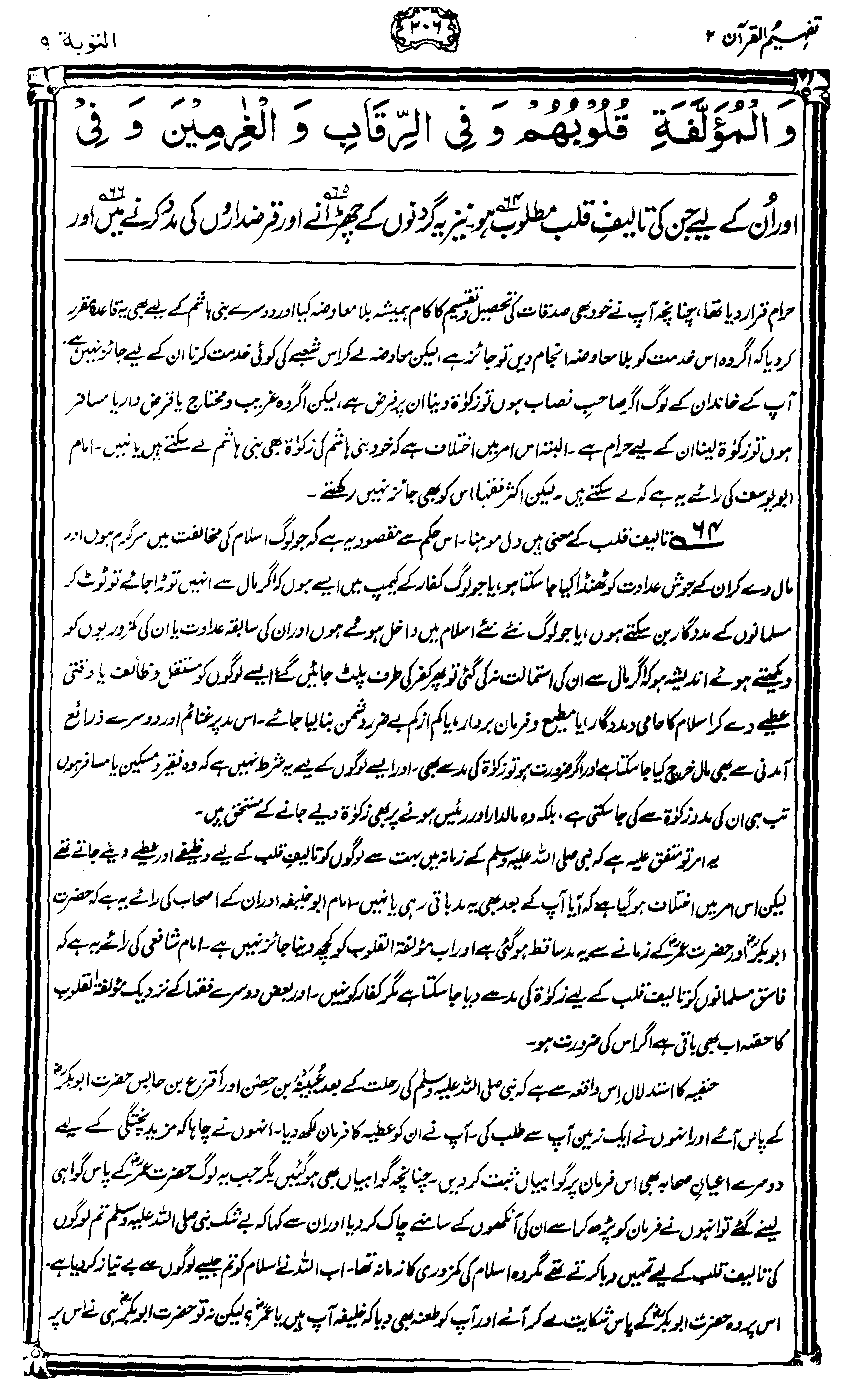 تفہیم القرآن ۲
۲۰۶
التوبۃ ۹
وَ الْمُؤَلَّفَةِ قُلُوْبُهُمْ وَ فِي الرِّقَابِ وَ الْغٰرِمِيْنَ وَ فِيْ
اور اُن کے لیے جن کی تالیفِ قلب مطلوب ہو۶۴ نیز یہ گردنوں کے چھڑانے۶۵ اور قرضداروں کی مدد کرنے میں۶۶ اور
حرام قرار دیا تھا، چنانچہ آپ نے خود بھی صدقات کی تحصیل و تقسیم کا کام ہمیشہ بلا معاوضہ کیا اور دوسرے بنی ہاشم کے لیے بھی یہ قاعدہ مقرر
کر دیا کہ اگر وہ اس خدمت کو بلا معاوضہ انجام دیں تو جائز ہے، لیکن معاوضہ لے کر اس شعبے کی کوئی خدمت کرنا ان کے لیے جائز نہیں ہے۔
آپ کے خاندان کے لوگ اگر صاحب نصاب ہوں تو زکوٰۃ دینا ان پر فرض ہے، لیکن اگر وہ غریب و محتاج یا قرض دار یا مسافر
ہوں تو زکوٰۃ لینا ان کے لیے حرام ہے۔ البتہ اس امر میں اختلاف ہے کہ خود بنی ہاشم کی زکوٰۃ بھی بنی ہاشم لے سکتے ہیں یا نہیں۔ امام
ابو یوسف کی رائے یہ ہے کہ لے سکتے ہیں۔ لیکن اکثر فقہا اس کو بھی جائز نہیں رکھتے۔
۶۴ تالیف قلب کے معنی ہیں دل موہنا۔ اس حکم سے مقصود یہ ہے کہ جو لوگ اسلام کی مخالفت میں سرگرم ہوں اور
مال دے کر ان کے جوش عداوت کو ٹھنڈا کیا جا سکتا ہو، یا جو لوگ کفار کے کیمپ میں ایسے ہوں کہ اگر مال سے انہیں توڑا جائے تو ٹوٹ کر
مسلمانوں کے مددگار بن سکتے ہوں، یا جو لوگ نئے نئے اسلام میں داخل ہوئے ہوں اور ان کی سابقہ عداوت یا ان کی کمزوریوں کو
دیکھتے ہوئے اندیشہ ہو کہ اگر مال سے ان کی استمالت نہ کی گئی تو پھر کفر کی طرف پلٹ جائیں گے، ایسے لوگوں کو مستقل وظائف یا وقتی
عطیے دے کر اسلام کا حامی و مددگار، یا مطیع و فرمان بردار، یا کم از کم بے ضرر دشمن بنا لیا جائے۔ اس مد پر غنائم اور دوسرے ذرائع
آمدنی سے بھی مال خرچ کیا جا سکتا ہے اور اگر ضرورت ہو تو زکوٰۃ کی مد سے بھی۔ اور ایسے لوگوں کے لیے یہ شرط نہیں ہے کہ وہ فقیر و مسکین یا مسافر ہوں
تب ہی ان کی مدد زکوٰۃ سے کی جا سکتی ہے، بلکہ وہ مالدار اور رئیس ہونے پر بھی زکوٰۃ دیے جانے کے مستحق ہیں۔
یہ امر تو متفق علیہ ہے کہ نبی صلی اللہ علیہ وسلم کے زمانہ میں بہت سے لوگوں کو تالیف قلب کے لیے وظیفے اور عطیے دیئے جاتے تھے
لیکن اس امر میں اختلاف ہو گیا ہے کہ آیا آپ کے بعد بھی یہ مد باقی رہی یا نہیں۔ امام ابو حنیفہ اور ان کے اصحاب کی رائے یہ ہے کہ حضرت
ابوبکرؓ اور حضرت عمرؓ کے زمانے سے یہ مد ساقط ہو گئی ہے اور اب مؤلفۃ القلوب کو کچھ دینا جائز نہیں ہے۔ امام شافعی کی رائے یہ ہے کہ
فاسق مسلمانوں کو تالیف قلب کے لیے زکوٰۃ کی مد سے دیا جا سکتا ہے مگر کفار کو نہیں۔ اور بعض دوسرے فقہا کے نزدیک مؤلفۃ القلوب
کا حصہ اب بھی باقی ہے اگر اس کی ضرورت ہو۔
حنفیہ کا استدلال اس واقعہ سے ہے کہ نبی صلی اللہ علیہ وسلم کی رحلت کے بعد عُیَینہ بن حِصن اور اقرع بن حابس حضرت ابوبکرؓ
کے پاس آئے اور انہوں نے ایک زمین آپ سے طلب کی۔ آپ نے ان کو عطیہ کا فرمان لکھ دیا۔ انہوں نے چاہا کہ مزید پختگی کے لیے
دوسرے اعیانِ صحابہ بھی اس فرمان پر گواہیاں ثبت کر دیں۔ چنانچہ گواہیاں بھی ہو گئیں۔ مگر جب یہ لوگ حضرت عمرؓ کے پاس گواہی
لینے گئے تو انہوں نے فرمان کو پڑھ کر اسے ان کی آنکھوں کے سامنے چاک کر دیا اور ان سے کہا کہ بے شک نبی صلی اللہ علیہ وسلم تم لوگوں
کی تالیف قلب کے لیے تمہیں دیا کرتے تھے مگر وہ اسلام کی کمزوری کا زمانہ تھا۔ اب اللہ نے اسلام کو تم جیسے لوگوں سے بے نیاز کر دیا ہے۔
اس پر وہ حضرت ابوبکرؓ کے پاس شکایت لے کر آئے اور آپ کو طعنہ بھی دیا کہ خلیفہ آپ ہیں یا عمرؓ؟ لیکن نہ تو حضرت ابوبکرؓ ہی نے اس پر